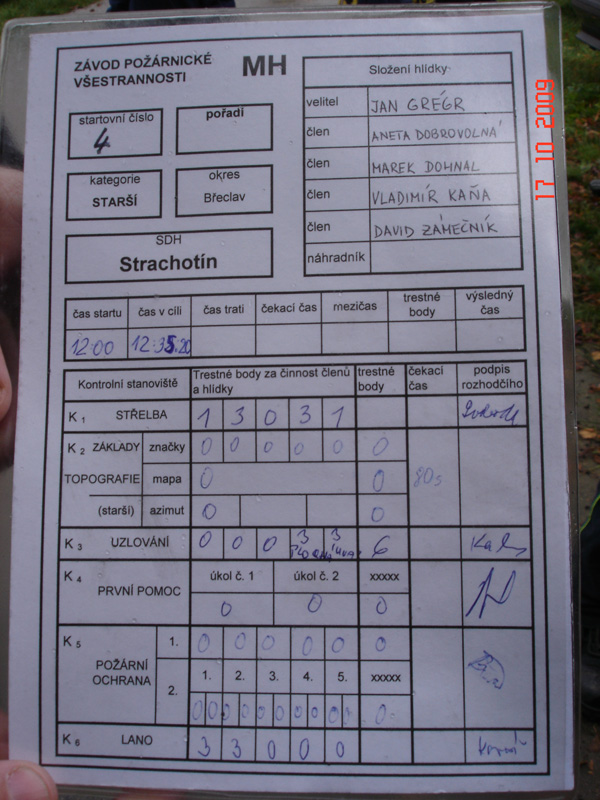 ZÁVOD POŽÁRNICKÉ
VŠESTRANNOSTI
MH
startovní číslo
4
pořadí
kategorie
STARŠÍ
okres
Břeclav
SDH
Strachotín
Složení hlídky
velitel JAN GRÉGR
člen ANETA DOBROVOLNÁ
člen MAREK DOHNAL
člen VLADIMÍR KAŇA
člen DAVID ZÁMEČNÍK
náhradník
17 10 2009
čas startu čas v cíli čas trati čekací čas mezičas trestné body výsledný čas
12:00 12:35.20
Kontrolní stanoviště Trestné body za činnost členů a hlídky trestné body čekací čas podpis rozhodčího
K 1 STŘELBA 1 3 0 3 1
K 2 ZÁKLADY značky 0 0 0 0 0 0
TOPOGRAFIE mapa 0 0 80s
(starší) azimut 0 0
K 3 UZLOVÁNÍ 0 0 0 3 3 6
K 4 PRVNÍ POMOC úkol č. 1 úkol č. 2 xxxxx
0 0 0
K 5 POŽÁRNÍ OCHRANA 1. 0 0 0 0 0 0
2. 1. 2. 3. 4. 5. xxxxx
0 0 0 0 0 0 0 0 0 0 0
K 6 LANO 3 3 0 0 0